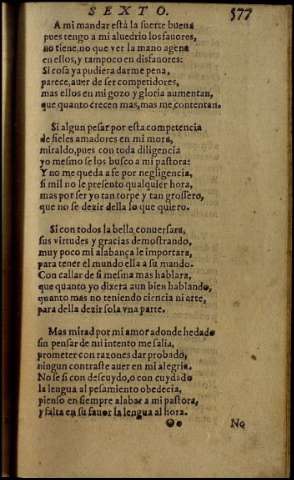 SEXTO. 577
A mi mandar está la suerte buena
pues tengo a mi aluedrio los fauores,
no tiene, no que ver la mano agena
en ellos, y tampoco en disfauores:
Si cosa ya pudiera darme pena,
parece, auer de ser competidores,
mas ellos en mi gozo y gloria aumentan,
que quanto crecen mas, mas me contentan.
Si algun pesar por esta competencia
de fieles amadores en mi mora,
miraldo, pues con toda diligencia
yo mesmo se los busco a mi pastora:
Y no me queda a se por negligencia,
si mil no le presento qualquier hora,
mas por ser yo tan torpe y tan grossero,
que no se dezir della lo que quiero.
Si con todos la bella conuersara,
sus virtudes y gracias demostrando,
muy poco mi alabança le importara,
para tener el mundo ella a su mando.
Con callar de si mesma mas hablara,
que quanto yo dixera aun bien hablando,
quanto mas no teniendo ciencia ni arte,
para della dezir sola vna parte.
Mas mirad por mi amor adonde hedado
sin pensar de mi intento me salia,
prometer con razones dar probado,
ningun contraste auer en mi alegria.
No se si con descuydo, o con cuydado
la lengua al pesamiento obedecia,
pienso en siempre alabar a mi pastora,
y falta en su fauor la lengua al hora.
Oo No